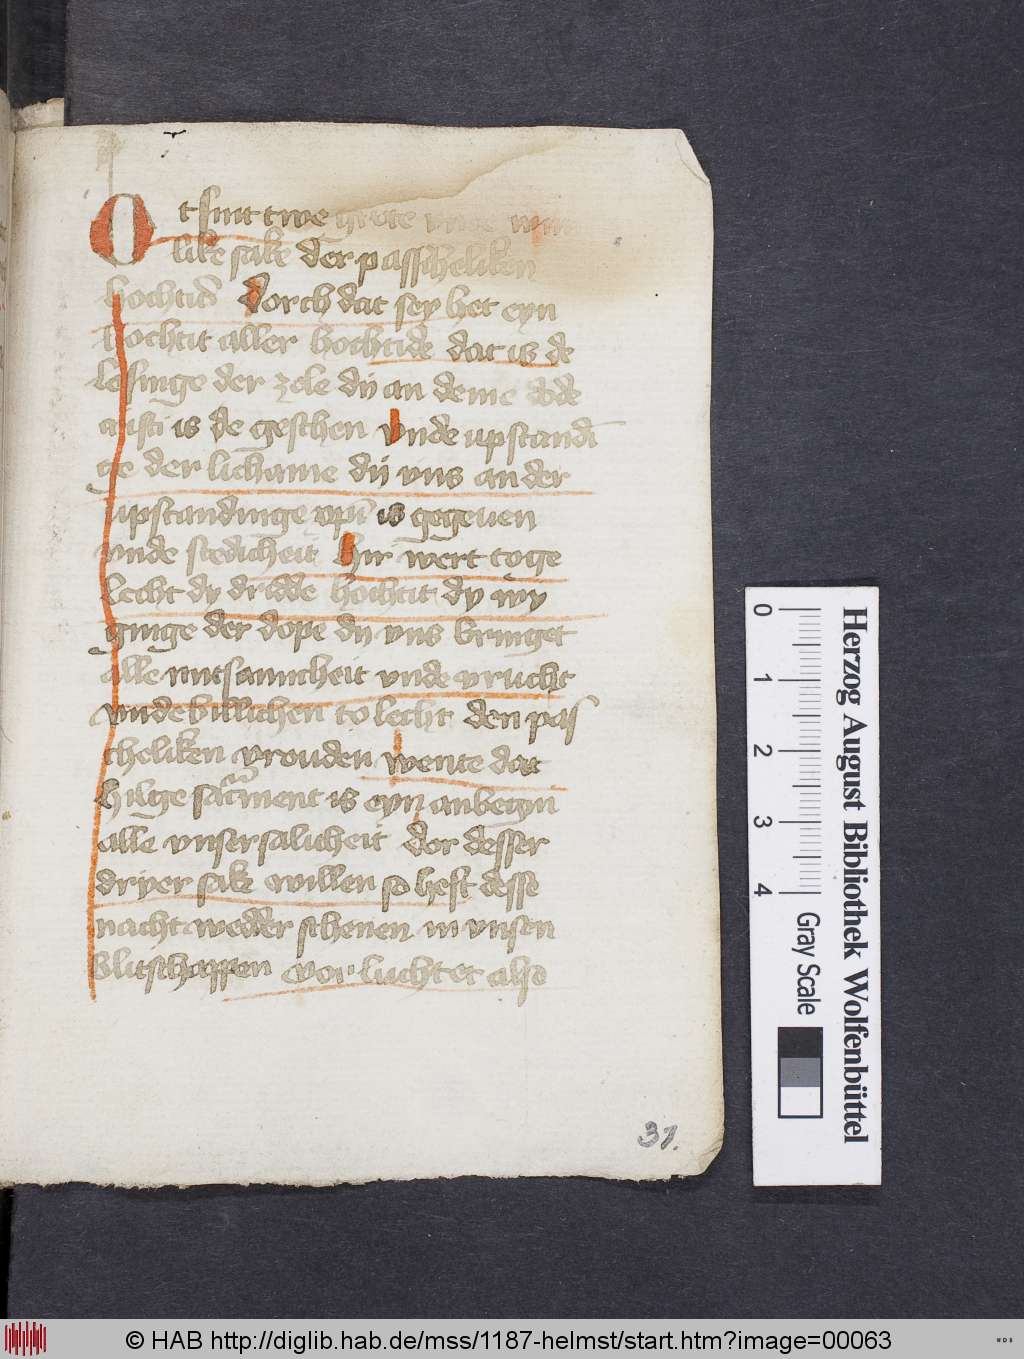 Ot sint twe grote vnde
like sake der passcheliken
hochtid dorch dat sey het eyn
hochtit aller hochtide dat is de
lesinge der zele dy an deme dode
cristi is de geschen vnde upstandi
ge der lichame dy vns an der
upstandinge is gegeuen
vnde stedicheit hir wert toge
lecht dy dridde hochtit dy wy
ginge der dope dy vns bringet
alle nutsamicheit vnde vrucht
vnde billichen to lecht den pas
cheliken vrouden wente dat
hilge sacrment is eyn anbegyn
alle vnser salicheit dor desser
dryer sake willen so heft desse
nacht wedder schenen in vnsen
blitschappen vorluchtet also
31.
0
1
2
3
4
Gray Scale
Herzog August Bibliothek Wolfenbüttel
© HAB http://diglib.hab.de/mss/1187-helmst/start.htm?image=00063